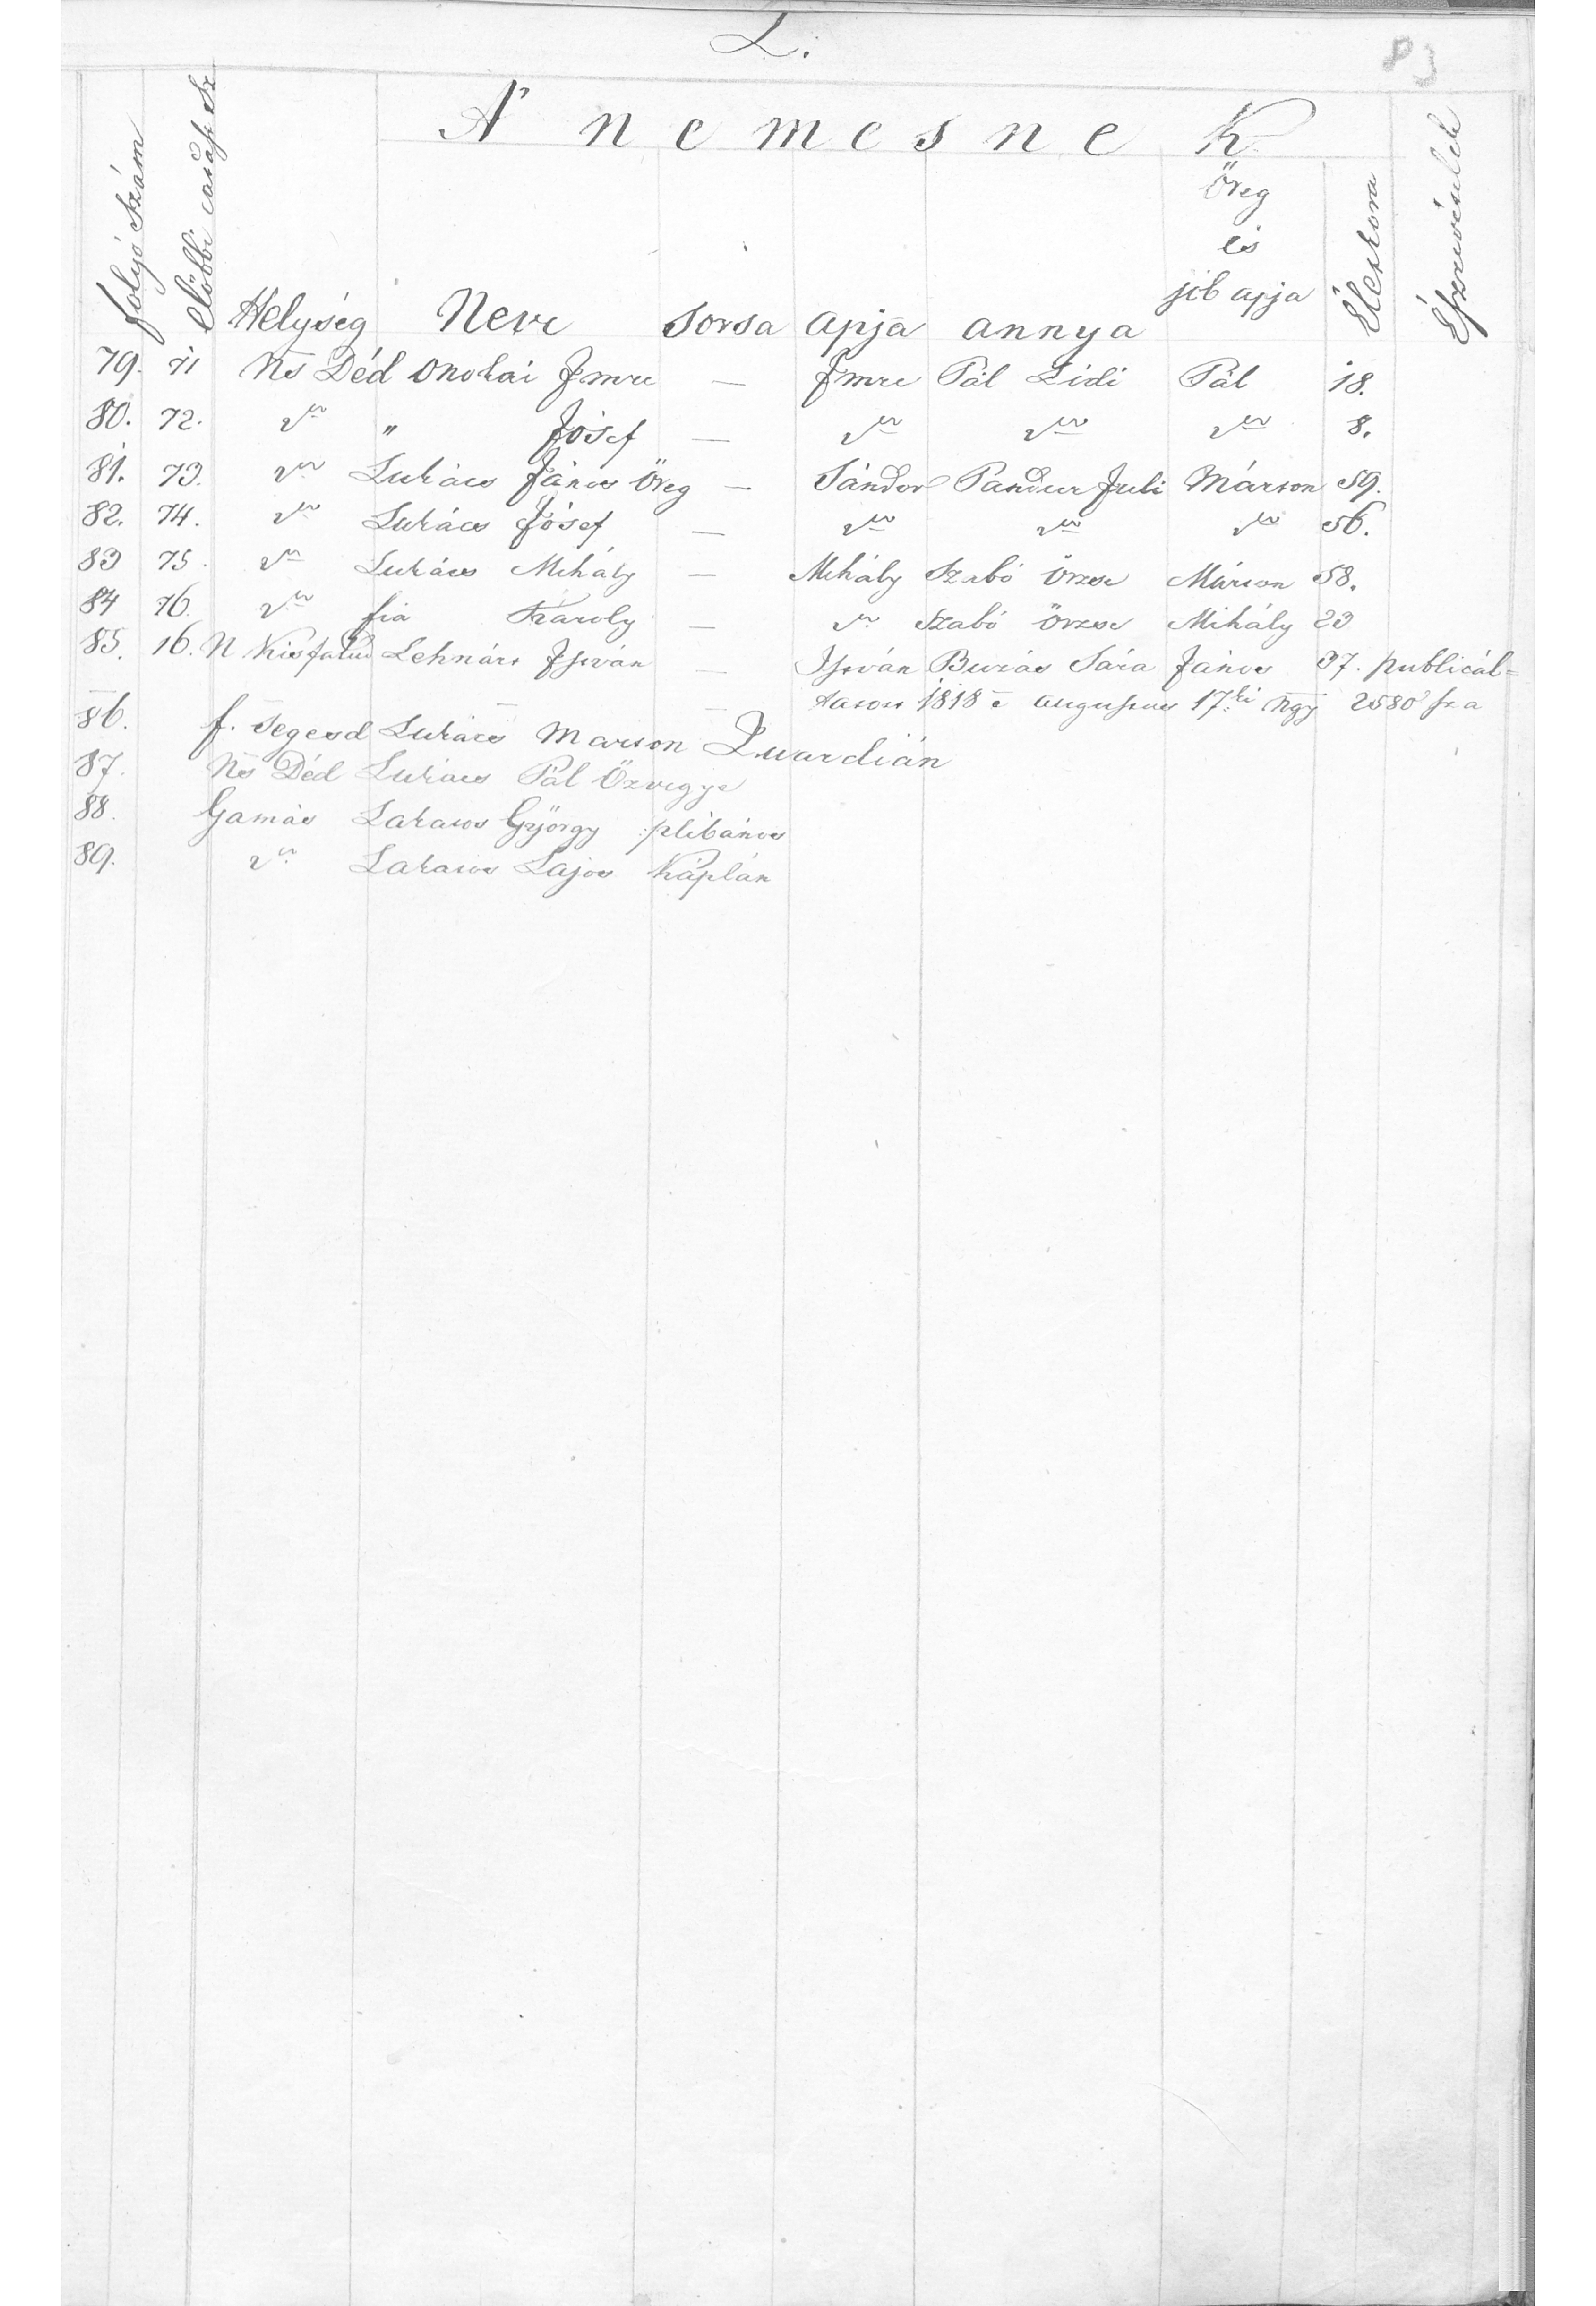 L.
83
A' nemesnek
folyó Szám
Előbbi csap Sz
Helység Neve Sorsa apja annya Öreg és szép apja Életkora Észrevételek
79. 71 Ns Déd Onokai Imre — Imre Pál Lidi Pál 18.
80. 72. " Jósef — 8.
81. 73. Lukács János Öreg — Sándor Pandur Juli Márton 59.
82. 74. Lukács Jósef — 56.
83 75. Lukács Mihály — Mihály Szabó Örzse Márton 58.
84 76. fia Károly — Szabó Örzse Mihály 23
85. 16. N Kisfalud Lehnárt István — István Burás Sára János 37. publicál=
tatott 1818 e augustus 17ki Ngy 2580 sz a
86. f. Segesd Lukács Marton Quardián
87. Ns Déd Lukács Pál Özvegye
88. Gamás Lakatos György plébános
89. Lakatos Lajos Káplán